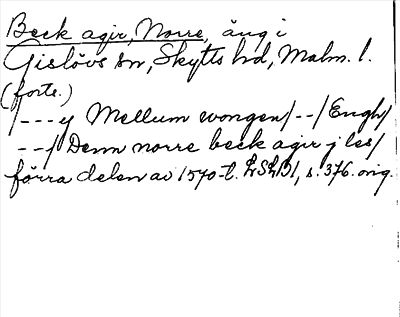 Beck agir, Norre, äng i
Gislövs sn, Skytts hd, Malm. l.
(forts.)
/---y Mellum vongen/--/Engh/
--/Denn norre beck agir j les/
förra delen av 1570-t. LSLB1, s. 376. orig.